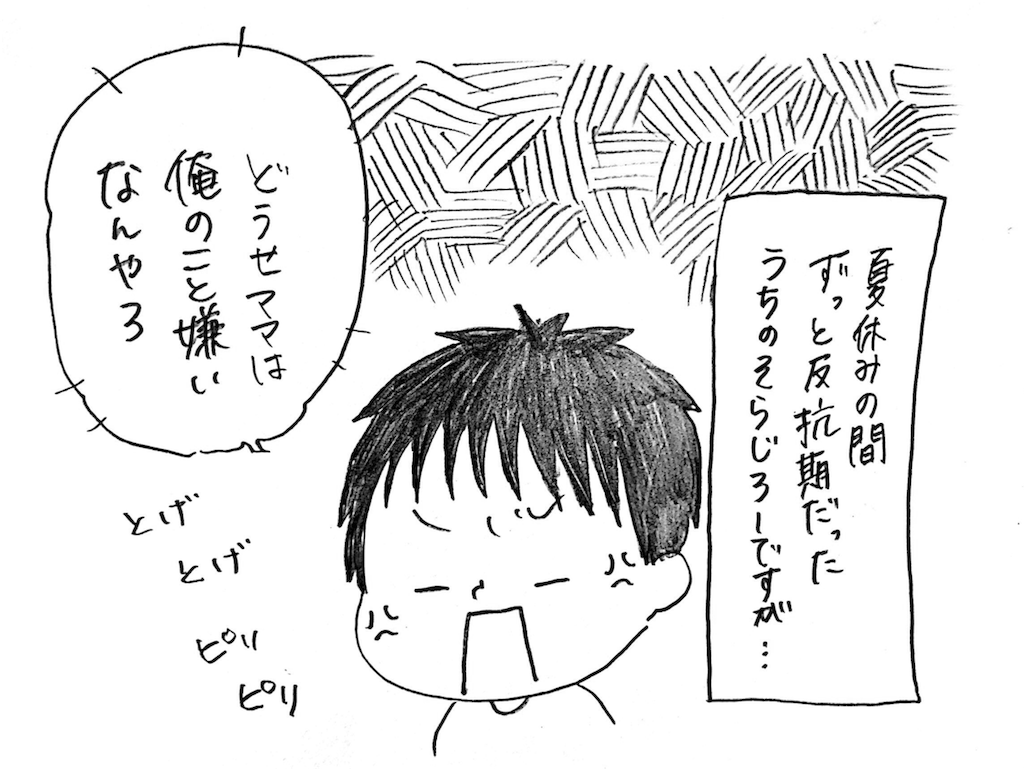 夏休みの間
ずっと反抗期だった
うちのそらじろーですが…
どうせママは
俺のこと嫌い
なんやろ
とげ
とげ
ピリ
ピリ